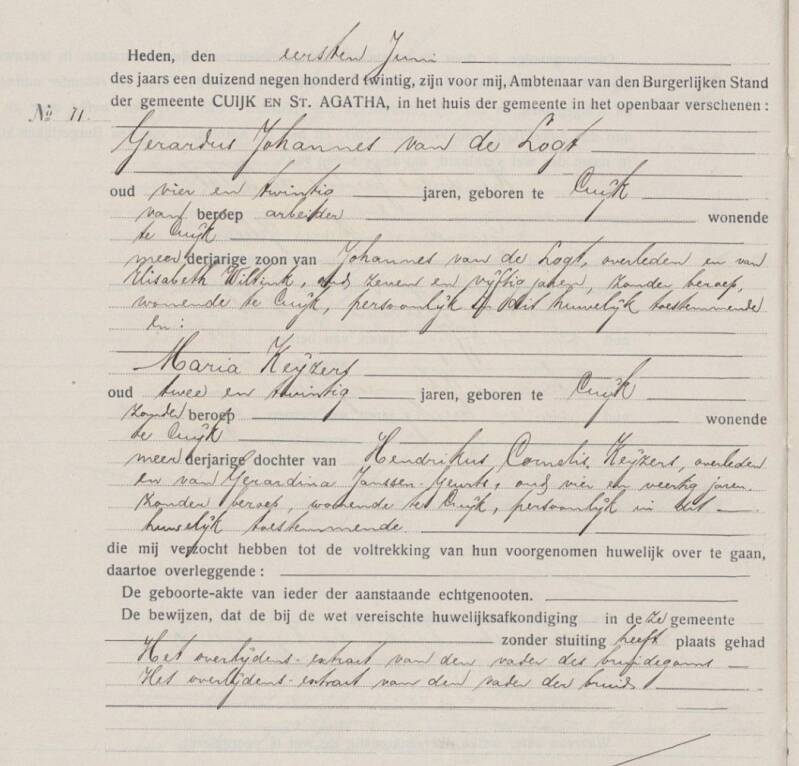 Heden, den eersten Juni
des jaars een duizend negen honderd twintig, zijn voor mij, Ambtenaar van den Burgerlijken Stand
der gemeente CUIJK EN ST. AGATHA, in het huis der gemeente in het openbaar verschenen :
No 11.
Gerardus Johannes van de Logt
oud vier en twintig jaren, geboren te Cuijk
van beroep arbeider wonende
te Cuijk
meerderjarige zoon van Johannes van de Logt, overleden en van
Elisabeth Wiltink, oud zeven en vijftig jaren, zonder beroep,
wonende te Cuijk, persoonlijk in dit huwelijk toestemmende
en :
Maria Keijzers
oud twee en twintig jaren, geboren te Cuijk
zonder beroep wonende
te Cuijk
meerderjarige dochter van Hendrikus Cornelis Keijzers, overleden
en van Gerardina Janssen-Geurts, oud vier en veertig jaren.
zonder beroep, wonende te Cuijk, persoonlijk in dit
huwelijk toestemmende.
die mij verzocht hebben tot de voltrekking van hun voorgenomen huwelijk over te gaan,
daartoe overleggende :
De geboorte-akte van ieder der aanstaande echtgenooten.
De bewijzen, dat de bij de wet vereischte huwelijksafkondiging in deze gemeente
zonder stuiting heeft plaats gehad
Het overlijdens-extract van den vader des bruidegoms
Het overlijdens-extract van den vader der bruid